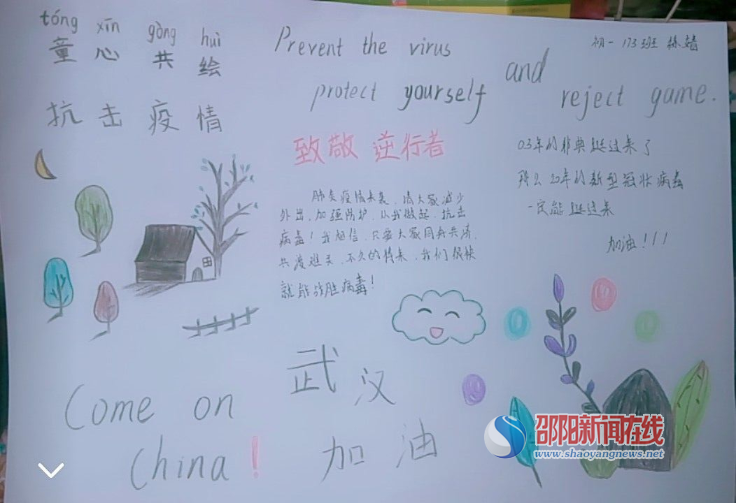 tóng xīn gòng huì
童心共绘
抗击疫情
Prevent the virus
protect yourself and
reject game.
初一 173班
致敬 逆行者
肺炎疫情来袭，请大家减少
外出，加强防护，从我做起，抗击
病毒！我相信，只要大家同舟共济，
共渡难关，不久的将来，我们很快
就能战胜病毒！
03年的非典挺过来了
那么20年的新型冠状病毒
一定能挺过来
加油！！！
武汉
加油
Come on
China!
邵阳新闻在线
www.shaoyangnews.net